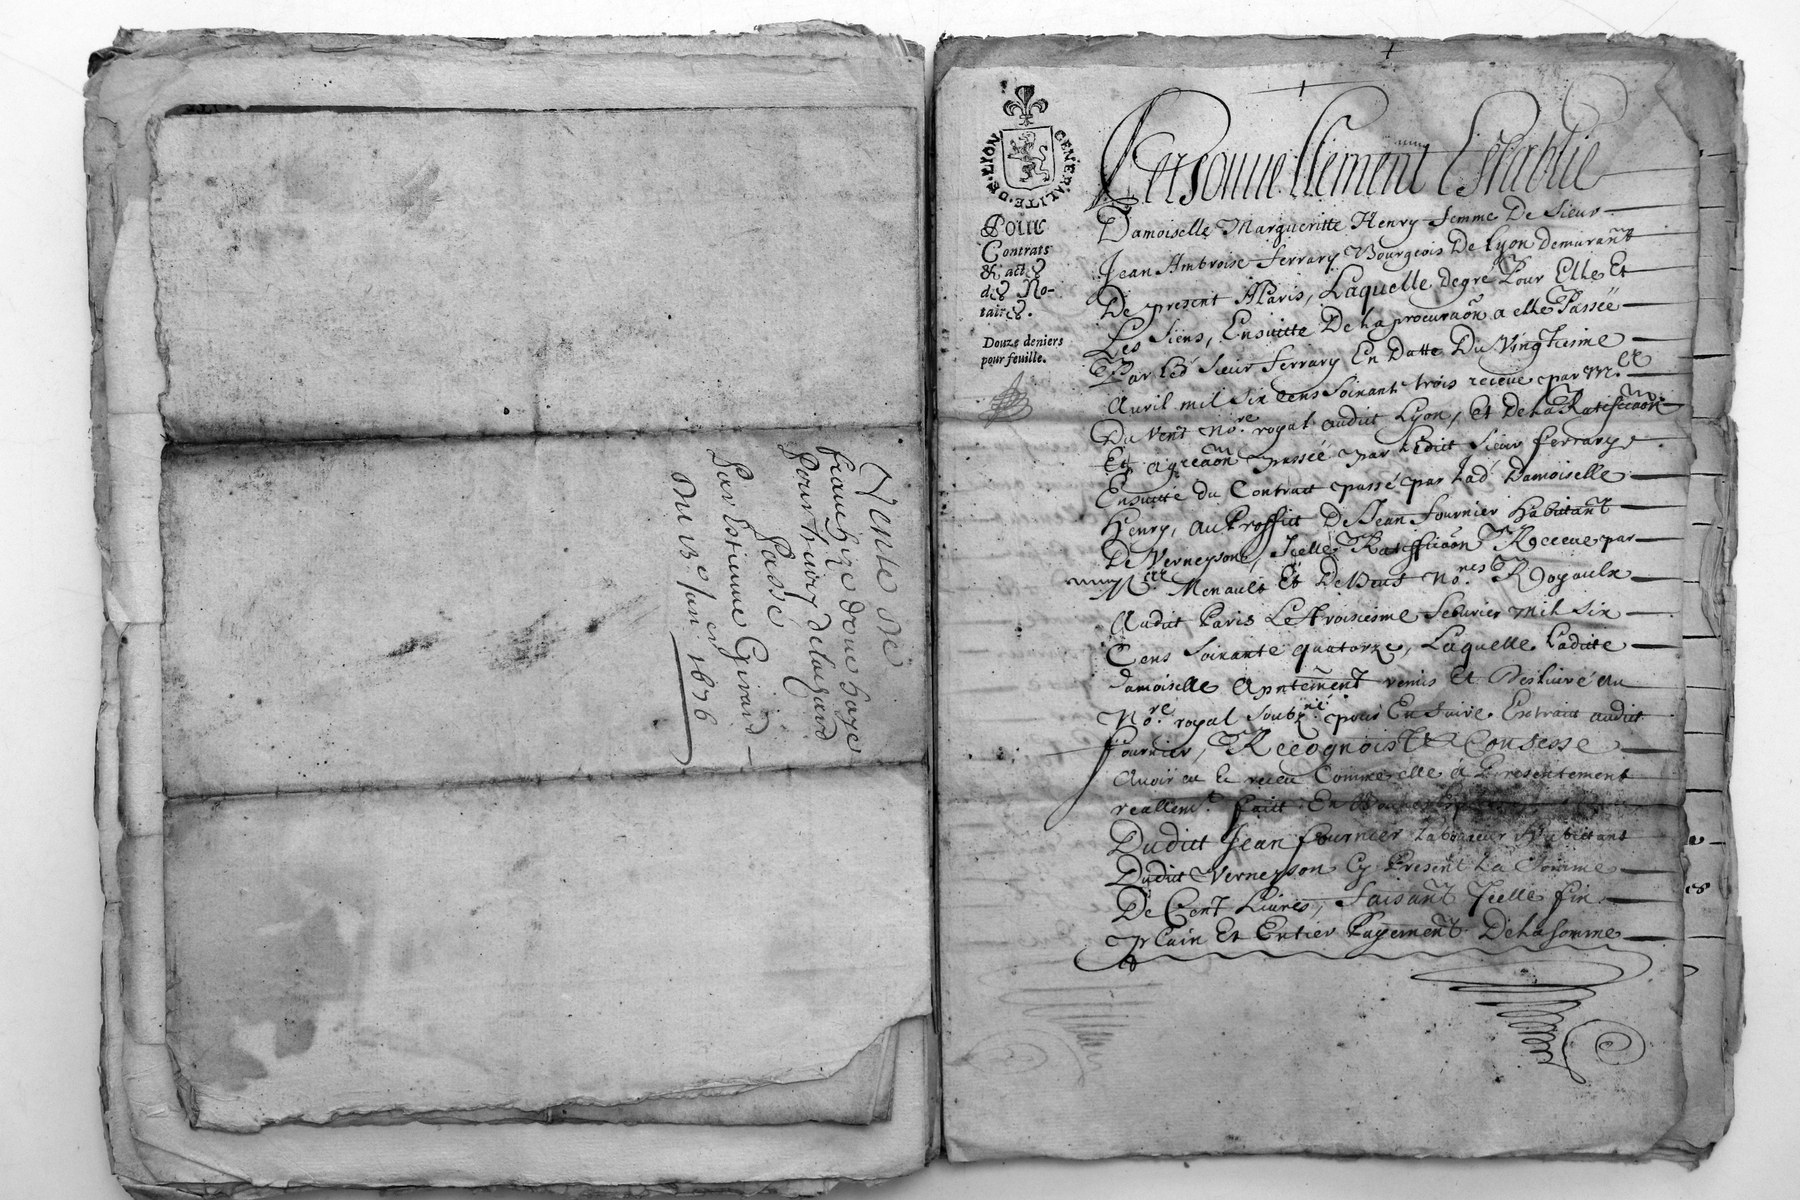 Vente de
franchize d'une haye
pour thevoz delagard
Passé
Par Estienne Girard
Du 13e Janer 1676
GENERALITE · DE · LION
Pour
Contrats
& actes
des No-
taires.
Douze deniers
pour feuille.
Personnellement Establie
Damoiselle Margueritte Henry femme De Sieur
Jean Ambroise Ferrary Bourgeois De Lyon demurant
De present A Paris, Laquelle degré Pour Elle Et
Les Siens, Ensuitte De La procuraõn a elle Passée
Par led Sieur Ferrary En Datte Du Vingtiesme
Auril mil six Cens Soixant trois receue par M.re
Du Vent No.re royal audit Lyon, Et De La Ratifficaõn
Et agreaõn passée par Ledict Sieur ferrary
Ensuitte du Contract passé par Lad. Damoiselle
Henry, au Proffict De Jean Fournier Habitant
De Verneyson, Icelle Ratifficaõn Receue par
M.re Menault Et De Beus No.res Royaulx
Audict Paris Le troisiesme Feburier mil six
Cens Soixante quatorze, Laquelle Ladicte
Damoiselle a pntement remis Et Desliuré au
No.re royal Soubz.né pour En faire Extraict audict
Fournier, Recognoist Confesse
Auoir eu Et receu Comme elle a Presentement
reallem.t faict En
Dudict Jean fournier Laboureur Habittant
Dudict Verneyson Cy Present La Somme
De Cent Liures, Faisant Icelle fin
Plain Et Entier Payement De La Somme